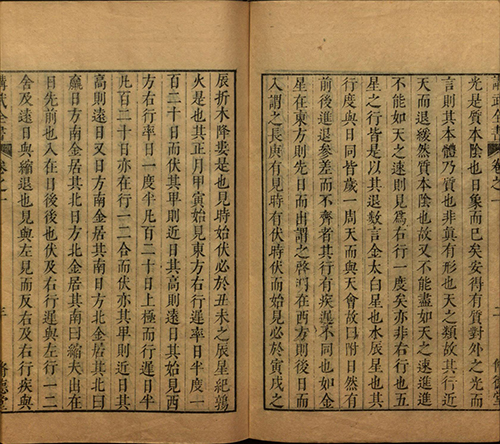 光是質本陰也日象而巳矣安得有二對外之光而
言則其本體乃質也非真有形也天之類故其行近
天而退緩然質本陰也故又不能盡如天之速進進
不能如天之速則見爲右行一度矣亦非右行也五
星之行皆是以其退數言金太白星也水辰星也其
行度與日同皆歲一周天而與天會故曰附日然有
前後進退參差而不齊者其行有疾遲不同也如金
星在東方則先日而出謂之啓明在西方則後日而
入謂之長庚有見時有伏時伏而始見必於寅戌之
辰折木降婁是也見時始伏必於丑未之辰星紀鶉
火是也其正月甲寅始見東方右行遲率日半度一
百二十日而伏其卑則近日其高則遠日其始見西
方右行率日一度半凡百二十日上極而行遲日半
凡百二十日亦行一二合而伏亦其卑則近日其
高則遠日又日方南金居其南日方北金居其北曰
贏日方南金居其北日方北金居其南曰縮夫出在
日先前也入在日後後也伏及右行遲與左行一二
舍及遠日與縮退也見與左見而反右及右行疾與
講武全書
卷之一
三
脩德堂